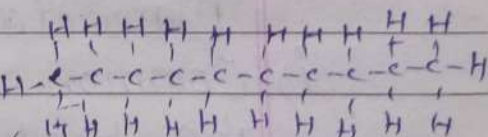 H H H H H H H H H H
H-C-C-C-C-C-C-C-C-C-C-H
H H H H H H H H H H